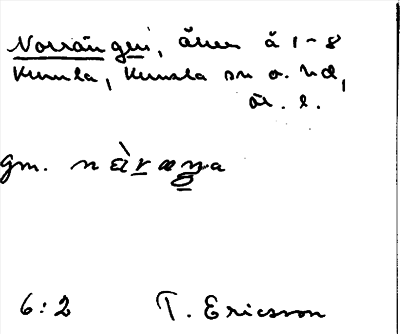 Norrängen, åker å 1-8
Kumla, Kumla sn o. hd,
Ör. l.
gm.
6:2 T. Ericsson